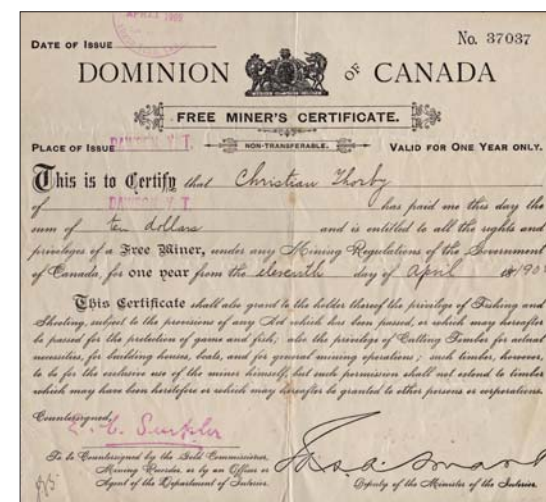 APR 11 1902
DATE OF ISSUE
No. 37037
DOMINION OF CANADA
FREE MINER'S CERTIFICATE.
PLACE OF ISSUE DAWSON, Y. T. NON-TRANSFERABLE. VALID FOR ONE YEAR ONLY.
This is to Certify that Christian Thorby
of DAWSON, Y. T. has paid me this day the
sum of ten dollars and is entitled to all the rights and
privileges of a Free Miner, under any Mining Regulations of the Government
of Canada, for one year from the eleventh day of April 190
This Certificate shall also grant to the holder thereof the privilege of Fishing and
Shooting, subject to the provisions of any Act which has been passed, or which may hereafter
be passed for the protection of game and fish; also the privilege of Cutting Timber for actual
necessities, for building houses, boats, and for general mining operations; such timber, however,
to be for the exclusive use of the miner himself, but such permission shall not extend to timber
which may have been heretofore or which may hereafter be granted to other persons or corporations.
Countersigned,
To be Countersigned by the Gold Commissioner,
Mining Recorder, or by an Officer or
Agent of the Department of Interior.
Jas. A. Smart
Deputy of the Minister of the Interior.